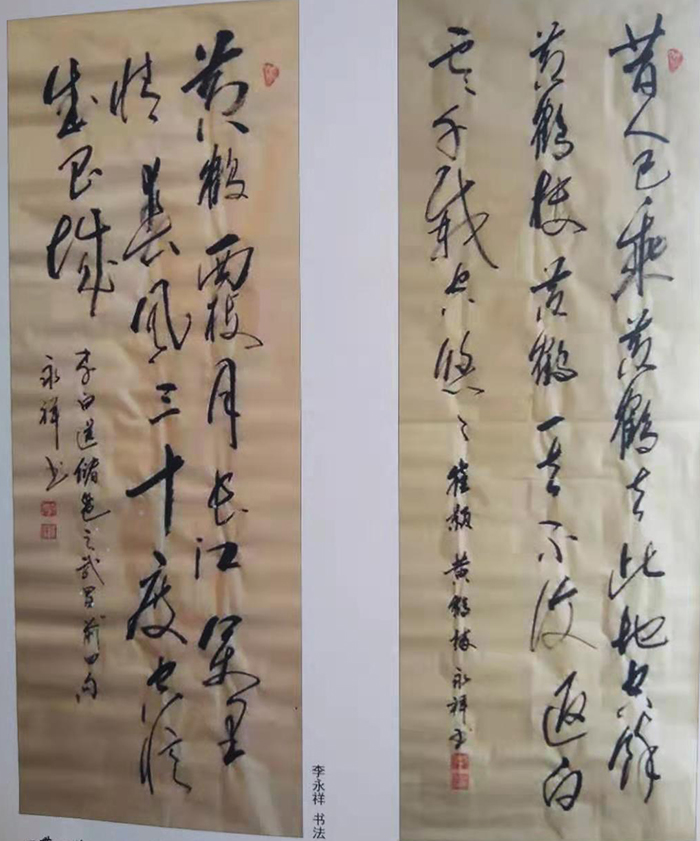 昔人已乘黄鹤去此地空餘
黄鹤楼黄鹤一去不復返白
雲千载空悠々崔颢黄鹤楼永祥书
黄鹤西楼月长江萬里
情春风三十度空忆
武昌城
李白送储邕之武昌前四句
永祥书
李永祥 书法